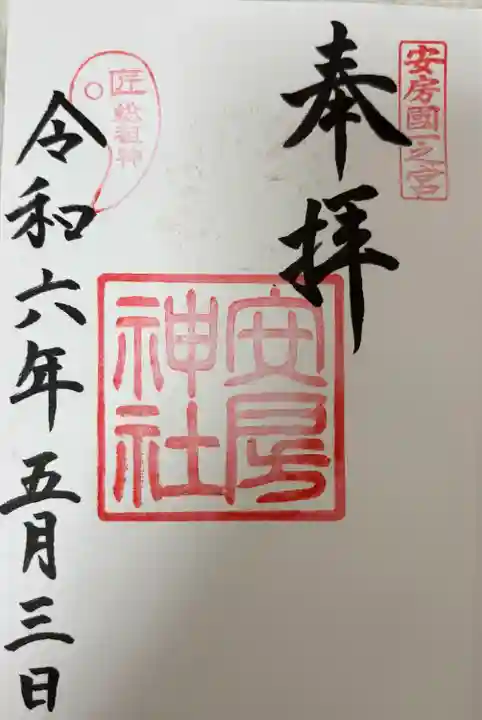 安房國一之宮
奉拝
安房
神社
匠総祖神
令和六年五月三日